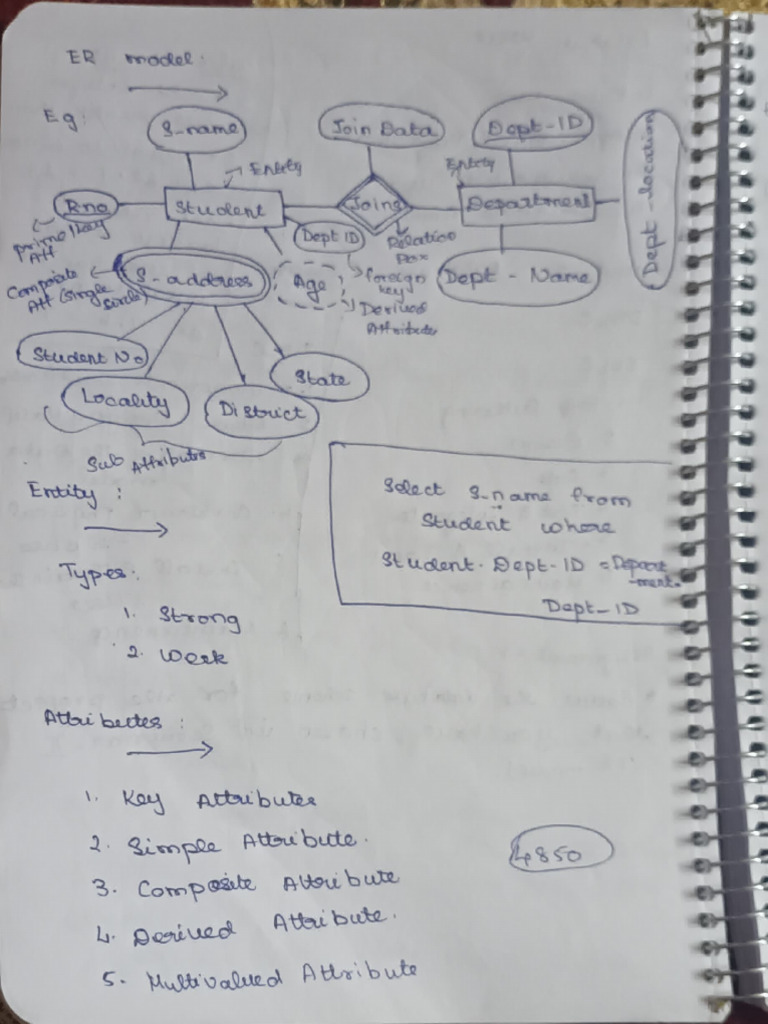 ER model:
Eg:
S-name
Join Data
Dept-ID
Entity
Entity
Rno
Student
Joins
Department
Dept-location
Prime/Key
Att
Dept ID
Relation
Composite
Att (Single
circle)
S-address
Age
foreign
key
Dept - Name
Derived
Attribute
Student No
State
Locality
District
Sub Attributes
Entity:
Select S-name from
Student where
Student. Dept-ID = Depart
-ment.
Dept-ID
Types:
1. Strong
2. Week
Attributes:
1. Key Attributes
2. Simple Attribute.
3. Composite Attribute
4. Derived Attribute.
5. Multivalued Attribute
4850